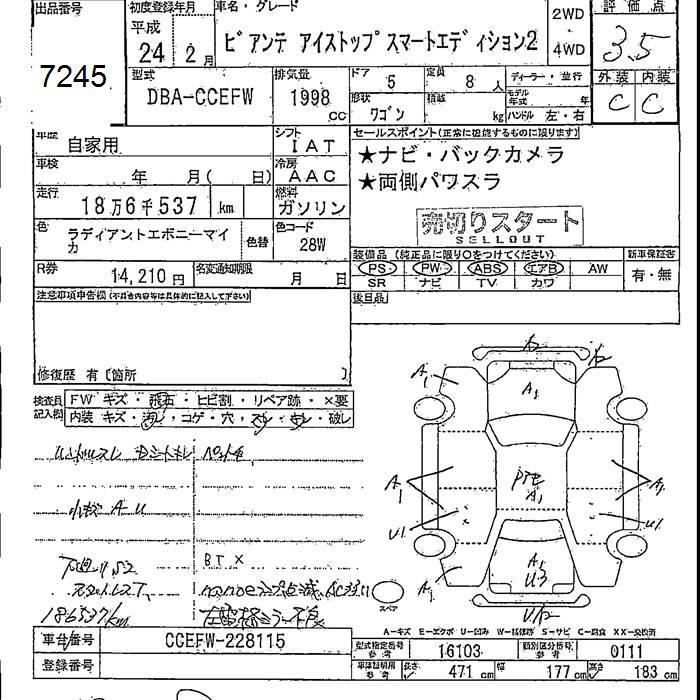 出品番号
7245
初度登録年月
平成
24 2月
車名・グレード
ビアンテ アイストップスマートエディション2
2WD
4WD
評価点
3.5
外装 内装
C C
型式
DBA-CCEFW
排気量
1998
cc
ドア
5
定員
8人
形状
ワゴン
積載
kg
ディーラー・並行
モデル年式 年
ハンドル 左・右
車歴
自家用
シフト
IAT
車検
年 月( 日)
冷房
AAC
走行
18万6千537 km
燃料
ガソリン
色
ラディアントエボニーマイカ
色替
色コード
28W
R券
14,210円
名変通知期限
月 日
セールスポイント(正常に機能するものに限ります)
★ナビ・バックカメラ
★両側パワスラ
売切りスタート
SELLOUT
装備品(純正品に限り○をつけてください)
PS PW ABS エアB AW
SR ナビ TV カワ
新車保証書
有・無
後日品
注意事項申告欄(不具合内容等は具体的に記入して下さい)
修復歴 有〔箇所 〕
検査員記入欄
FW キズ・飛石・ヒビ割・リペア跡・×要
内装 キズ・汚レ・コゲ・穴・スレ・キレ・破レ
小キズ A U
BT ×
186537km
A1
A1
A1
A1
A1
A1
U3
スペア
A-キズ E-エクボ U-凹み W-補修跡 S-サビ C-腐食 XX-交換済
車台番号
CCEFW-228115
登録番号
型式指定番号
参考
16103
類別区分番号
参考
0111
車検証明用
参考
長さ 471 cm 幅 177 cm 高さ 183 cm